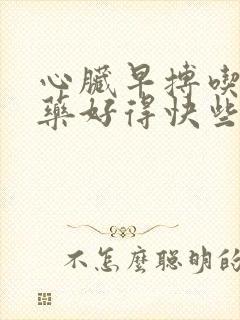 心臟早搏喫
藥好得快些
不怎麼聰明的